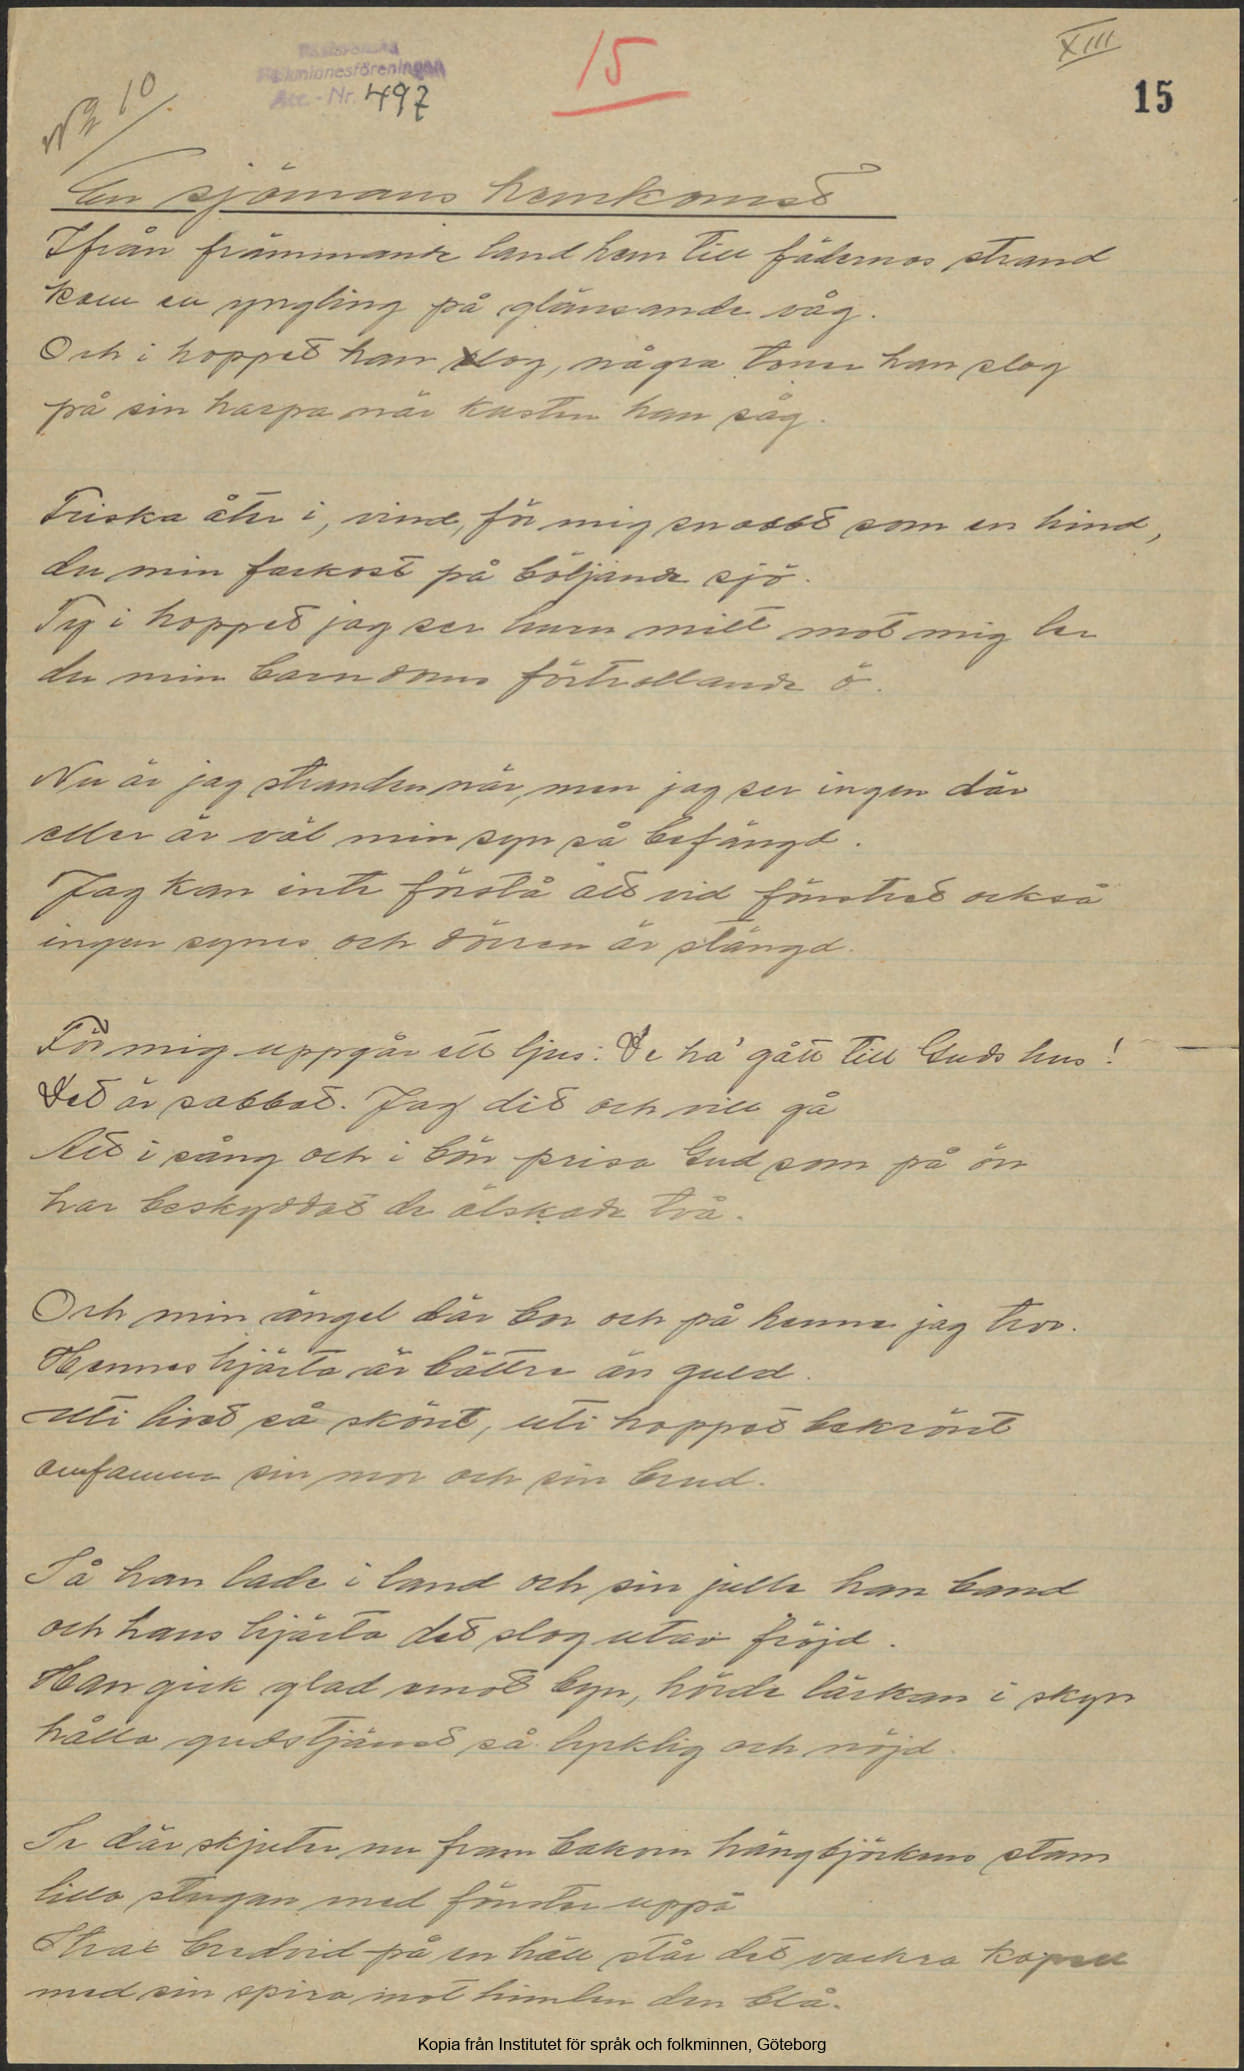 XIII
15
15
No 10
Västsvenska
Folkminnesföreningen
Acc.-Nr. 497
En sjömans hemkomst
Ifrån främmande land hem till fädernas strand
kom en yngling på glänsande våg.
Och i hoppet han log, några toner han slog
på sin harpa när kusten han såg.
Friska åter i, vind, för mig snabbt som en hind,
du min farkost på böljande sjö.
Ty i hoppet jag ser huru milt mot mig ler
du min barndoms förtrollande ö.
Nu är jag stranden när, men jag ser ingen där
eller är väl min syn så befängd.
Jag kan inte förstå att vid fönstret också
ingen synes och dörren är stängd.
För mig uppgår ett ljus: De ha' gått till Guds hus!
Det är sabbat. Jag dit och vill gå
Att i sång och i bön prisa Gud som på ön
har beskyddat de älskade två.
Och min ängel där bor och på henne jag tror.
Hennes hjärta är bättre än guld.
Uti livet så skönt, uti hoppet bekrönt
omfamna sin mor och sin brud.
Så han lade i land och sin julle han band
och hans hjärta det slog utav fröjd.
Han gick glad emot byn, hörde lärkan i skyn
hålla gudstjänst så lycklig och nöjd.
Se där skjuter nu fram bakom hängbjörkens stam
lilla stugan med fönster uppå
Strax bredvid på en häll står det vackra kapell
med sin spira mot himlen den blå.
Kopia från Institutet för språk och folkminnen, Göteborg